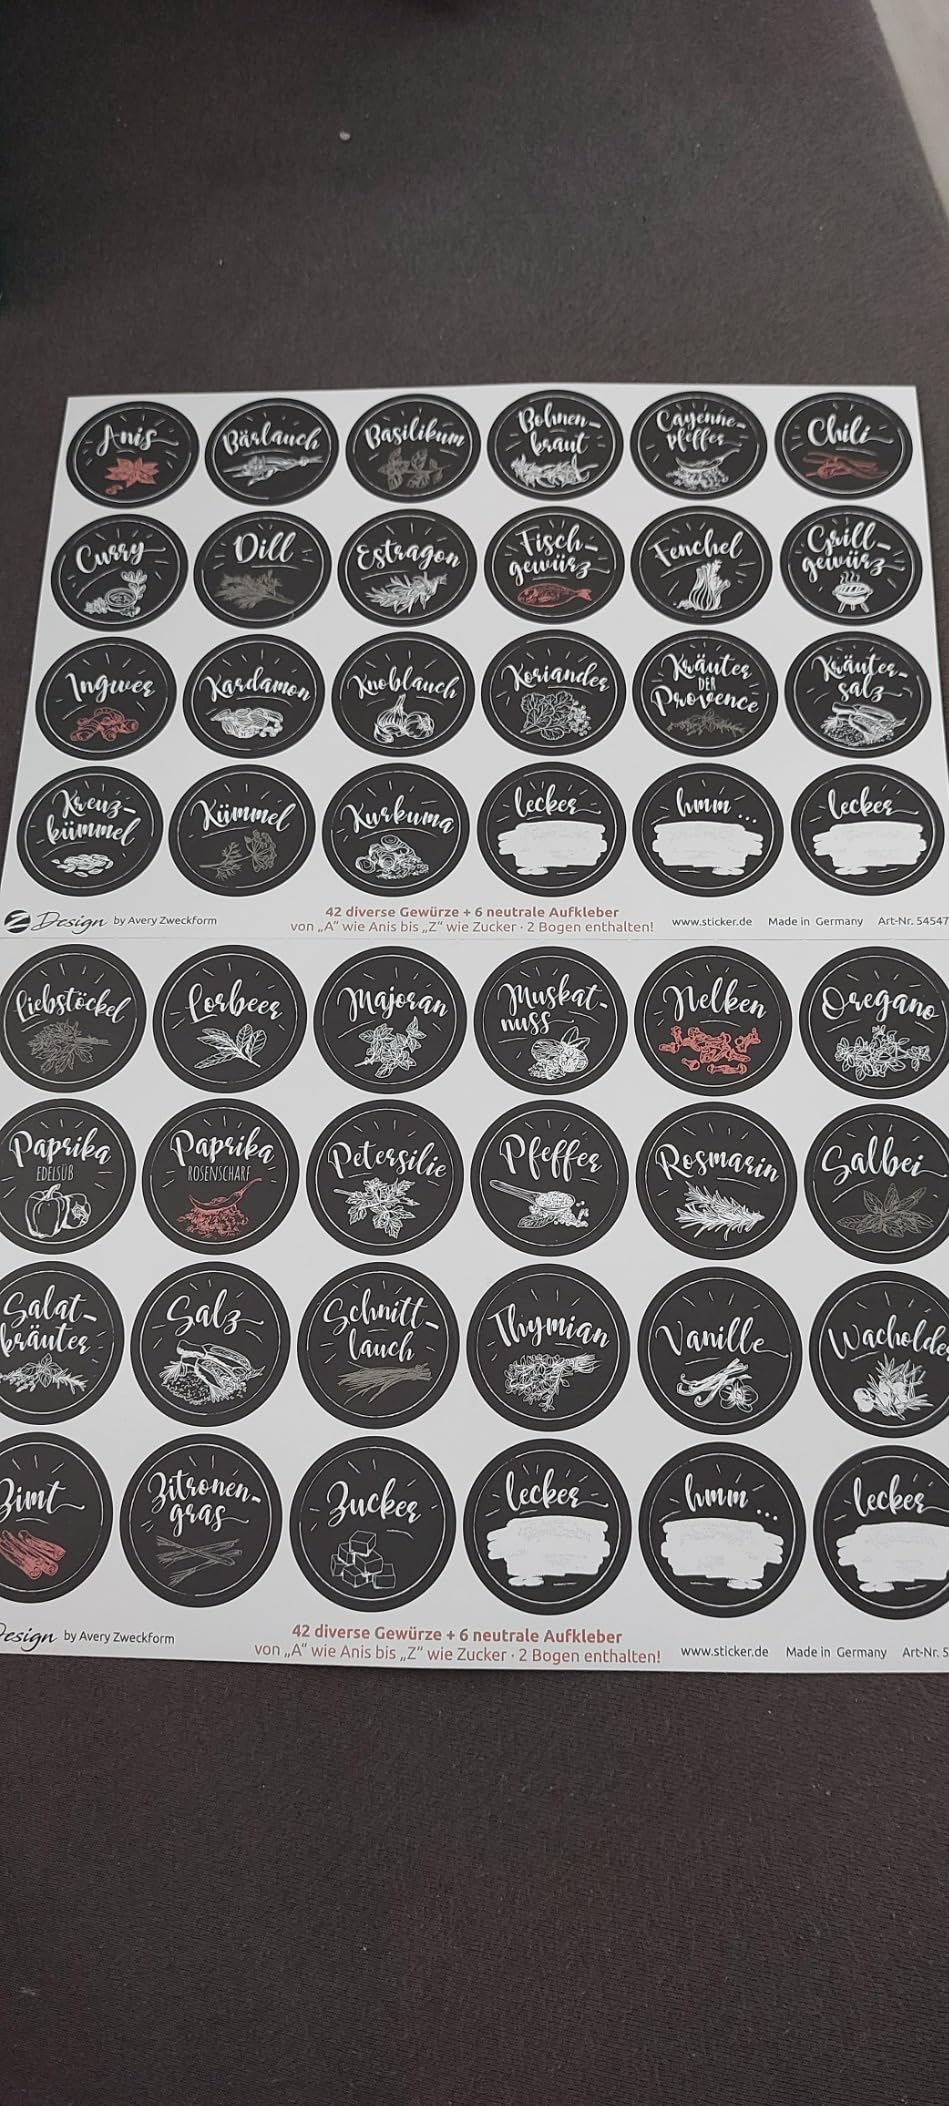 Anis
Bärlauch
Basilikum
Bohnen-
kraut
Cayenne-
pfeffer
Chili
Curry
Dill
Estragon
Fisch-
gewürz
Fenchel
Grill-
gewürz
Ingwer
Kardamon
Knoblauch
Koriander
Kräuter
DER
Provence
Kräuter-
salz
Kreuz-
kümmel
Kümmel
Kurkuma
lecker
hmm ...
lecker
Z Design by Avery Zweckform
42 diverse Gewürze + 6 neutrale Aufkleber
von „A“ wie Anis bis „Z“ wie Zucker · 2 Bogen enthalten!
www.sticker.de Made in Germany Art-Nr. 54547
Liebstöckel
Lorbeer
Majoran
Muskat-
nuss
Nelken
Oregano
Paprika
EDELSÜß
Paprika
ROSENSCHARF
Petersilie
Pfeffer
Rosmarin
Salbei
Salat-
kräuter
Salz
Schnitt-
lauch
Thymian
Vanille
Wacholde
Zimt
Zitronen-
gras
Zucker
lecker
hmm ...
lecker
Design by Avery Zweckform
42 diverse Gewürze + 6 neutrale Aufkleber
von „A“ wie Anis bis „Z“ wie Zucker · 2 Bogen enthalten!
www.sticker.de Made in Germany Art-Nr. 5